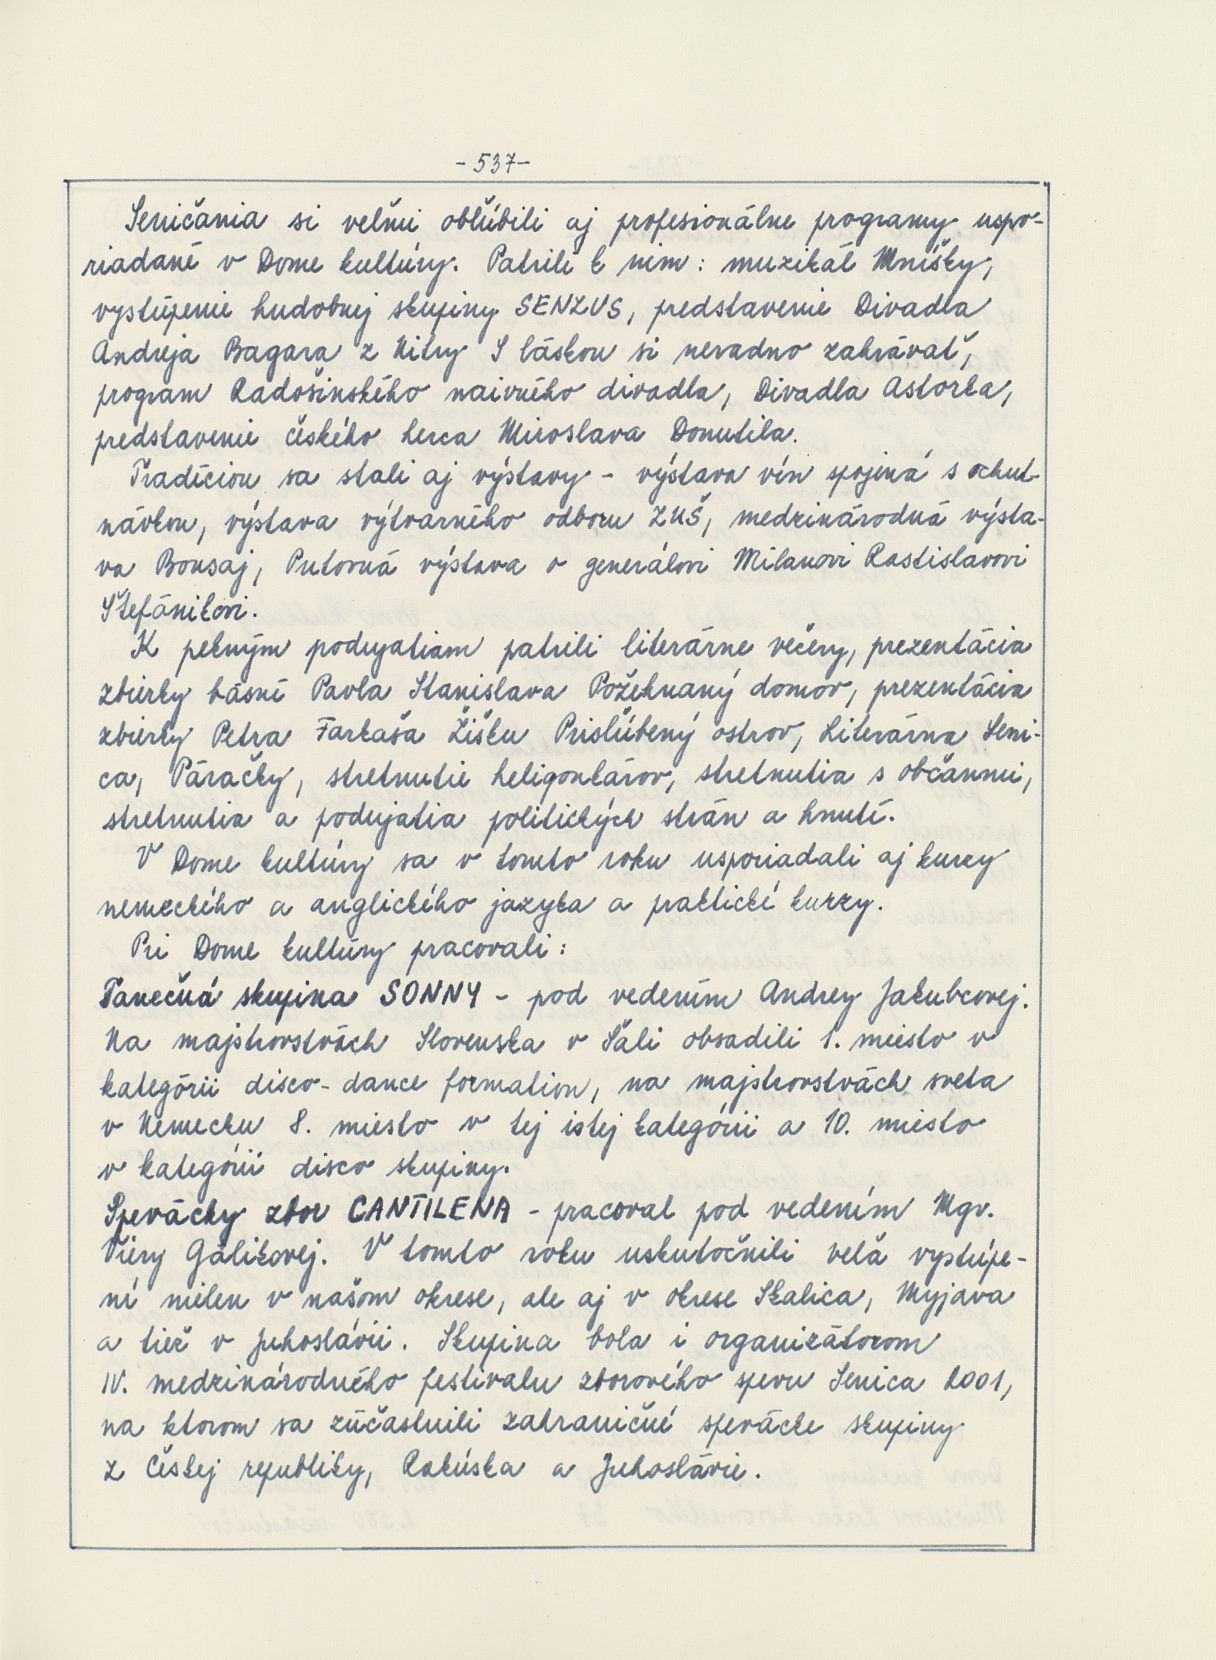 -537-
Seničania si veľmi obľúbili aj profesionálne programy uspo-
riadané v Dome kultúry. Patrili k nim: muzikál Mníšky,
vystúpenie hudobnej skupiny SENZUS, predstavenie Divadla
Andreja Bagara z Nitry S láskou si neradno zahrávať,
program Radošinského naivného divadla, Divadla Astorka,
predstavenie českého herca Miroslava Donutila.
Tradíciou sa stali aj výstavy - výstava vín spojená s ochut-
návkou, výstava výtvarného odboru ZUŠ, medzinárodná výsta-
va Bonsaj, Putovná výstava o generálovi Milanovi Rastislavovi
Štefánikovi.
K pekným podujatiam patrili literárne večery, prezentácia
zbierky básní Pavla Stanislava Požehnaný domov, prezentácia
zbierky Petra Farkaša Žišku Prisľúbený ostrov, Literárna Seni-
ca, Páračky, stretnutie heligonkárov, stretnutia s občanmi,
stretnutia a podujatia politických strán a hnutí.
V Dome kultúry sa v tomto roku usporiadali aj kurzy
nemeckého a anglického jazyka a praktické kurzy.
Pri Dome kultúry pracovali:
Tanečná skupina SONNY - pod vedením Andrey Jakubcovej.
Na majstrovstvách Slovenska v Šali obsadili 1. miesto v
kategórii disco-dance formation, na majstrovstvách sveta
v Nemecku 8. miesto v tej istej kategórii a 10. miesto
v kategórii disco skupiny.
Spevácky zbor CANTILENA - pracoval pod vedením Mgr.
Viery Gálikovej. V tomto roku uskutočnili veľa vystúpe-
ní nielen v našom okrese, ale aj v okrese Skalica, Myjava
a tiež v Juhoslávii. Skupina bola i organizátorom
IV. medzinárodného festivalu zborového spevu Senica 2001,
na ktorom sa zúčastnili zahraničné spevácke skupiny
z Českej republiky, Rakúska a Juhoslávie.